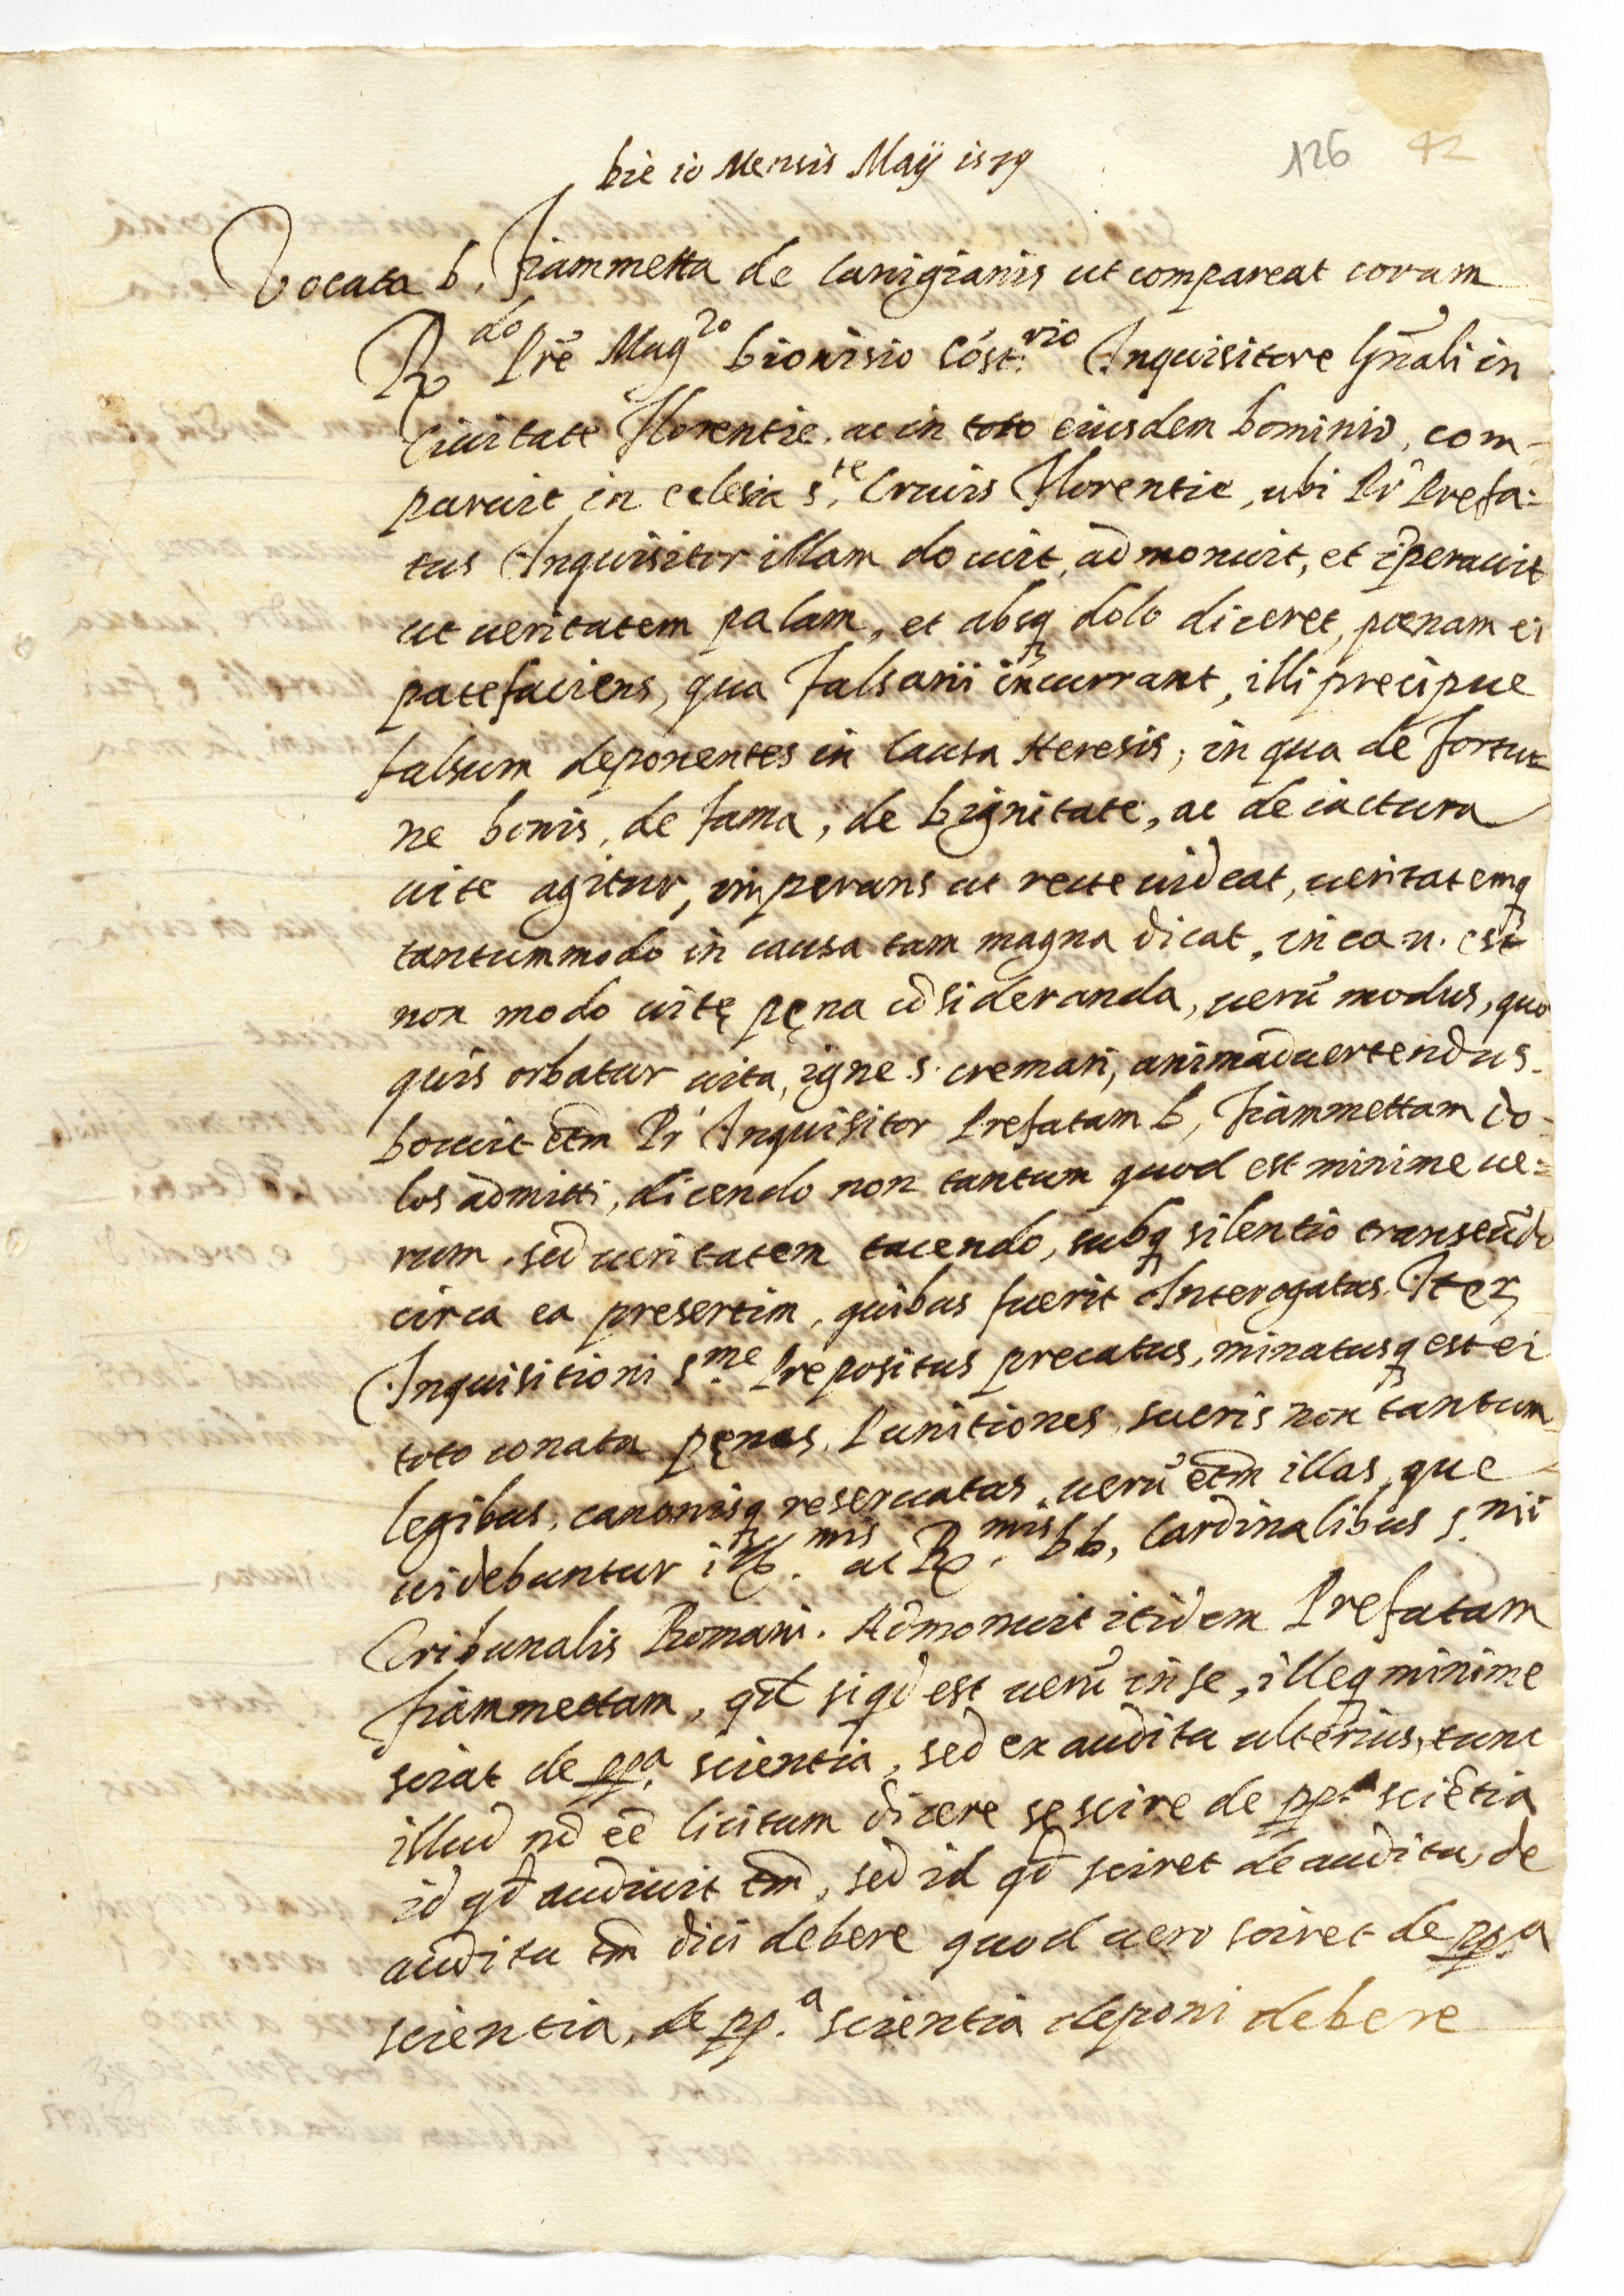 126 42
Die 10 Mensis Maÿ 1579
Vocata D. Fiammetta de Canigianis ut compareat coram
R.do Prē Mag.ro Dionisio Cóst.rio Inquisitore Gñali in
Ciuitate Florentie. ac in toto eiusdem Dominio, com-
paruit in eclesia S.te Crucis Florentie, ubi Pr̄ Prefa=
tus Inquisitor illam docuit, admonuit, et īperauit
ut ueritatem palam, et absq; dolo diceret, pœnam ei
patefaciens, qua falsarii incurrant, illi precipue
falsum deponentes in causa Heresis; in qua de fortu=
ne bonis, de fama, de Dignitate, ac de iactura
uite agitur, imperans ut recte uideat, ueritatemq;
tantummodo in causa tam magna dicat, in ea n. est
non modo uitę pęna cōsideranda, uerū modus, quo
quis orbatur uita, igne s. cremari, animaduertendus.
Docuit etm̄ Pr̄ Inquisitor Prefatam D, Fiammettam do-
los admitti, dicendo non tantum quod est minime ue=
rum, sed ueritatem tacendo, subq; silentio transeūdo
circa ea presertim, quibus fuerit Interogatus. Iter;
Inquisitioni S.me Prepositus precatus, minatusq; est ei
toto conatu pęnas, Punitiones, sacris non tantum
legibus, canonisq; reseruatas, uerū etm̄ illas, que
uidebuntur Ill.mis ac R.mis DD, Cardinalibus S.mi
Tribunalis Romani. Admonuit itidem Prefatam
Fiammettam, qd̄ siqd̄ est uerū in se, illeq; minime
sciat de pp.a scientia, sed ex auditu alterius, tunc
illud nō eē licitum dicere se scire de pp.a sciētia
id qd̄ audiuit tm̄, sed id qd̄ sciret de auditu, de
auditu tm̄ dici debere quod uero sciret de pp.a
scientia, de pp.a scientia deponi debere